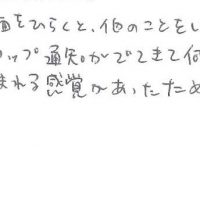 面をひらくと、他のことをし
ップ通知がでてきて何
まれる感覚があったため